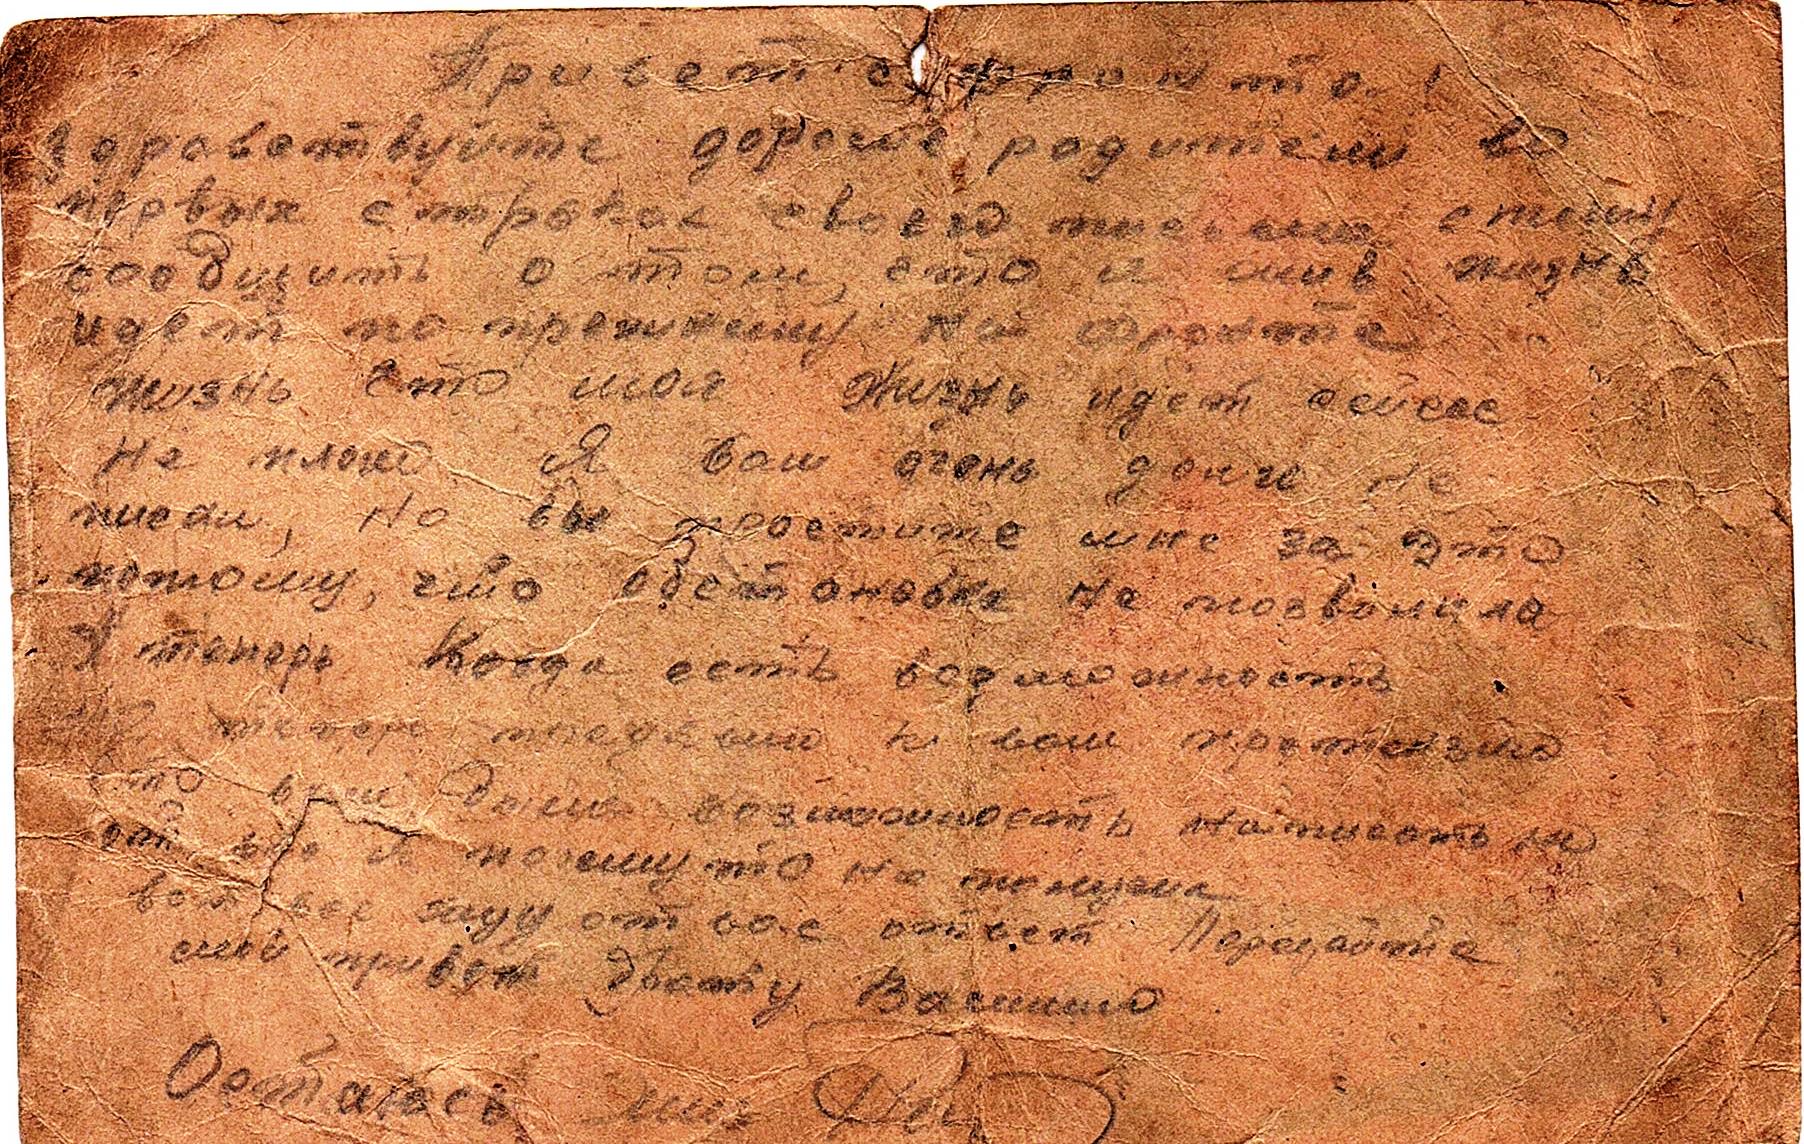 Привет с фронта!
Здравствуйте дорогие родители во
первых строках своего письма спешу
сообщить о том, что я жив жизнь
идет по прежнему на фронте
жизнь что моя жизнь идет сейчас
не плохо Я вам очень долго не
писал, но вы простите мне за это
потому, что обстановка не позволила
А теперь когда есть возможность
теперь к вам претензию
то вам возможность написать
я почему то не получил
вот все жду от вас ответ Передайте
мой привет брату Василию
Остаюсь